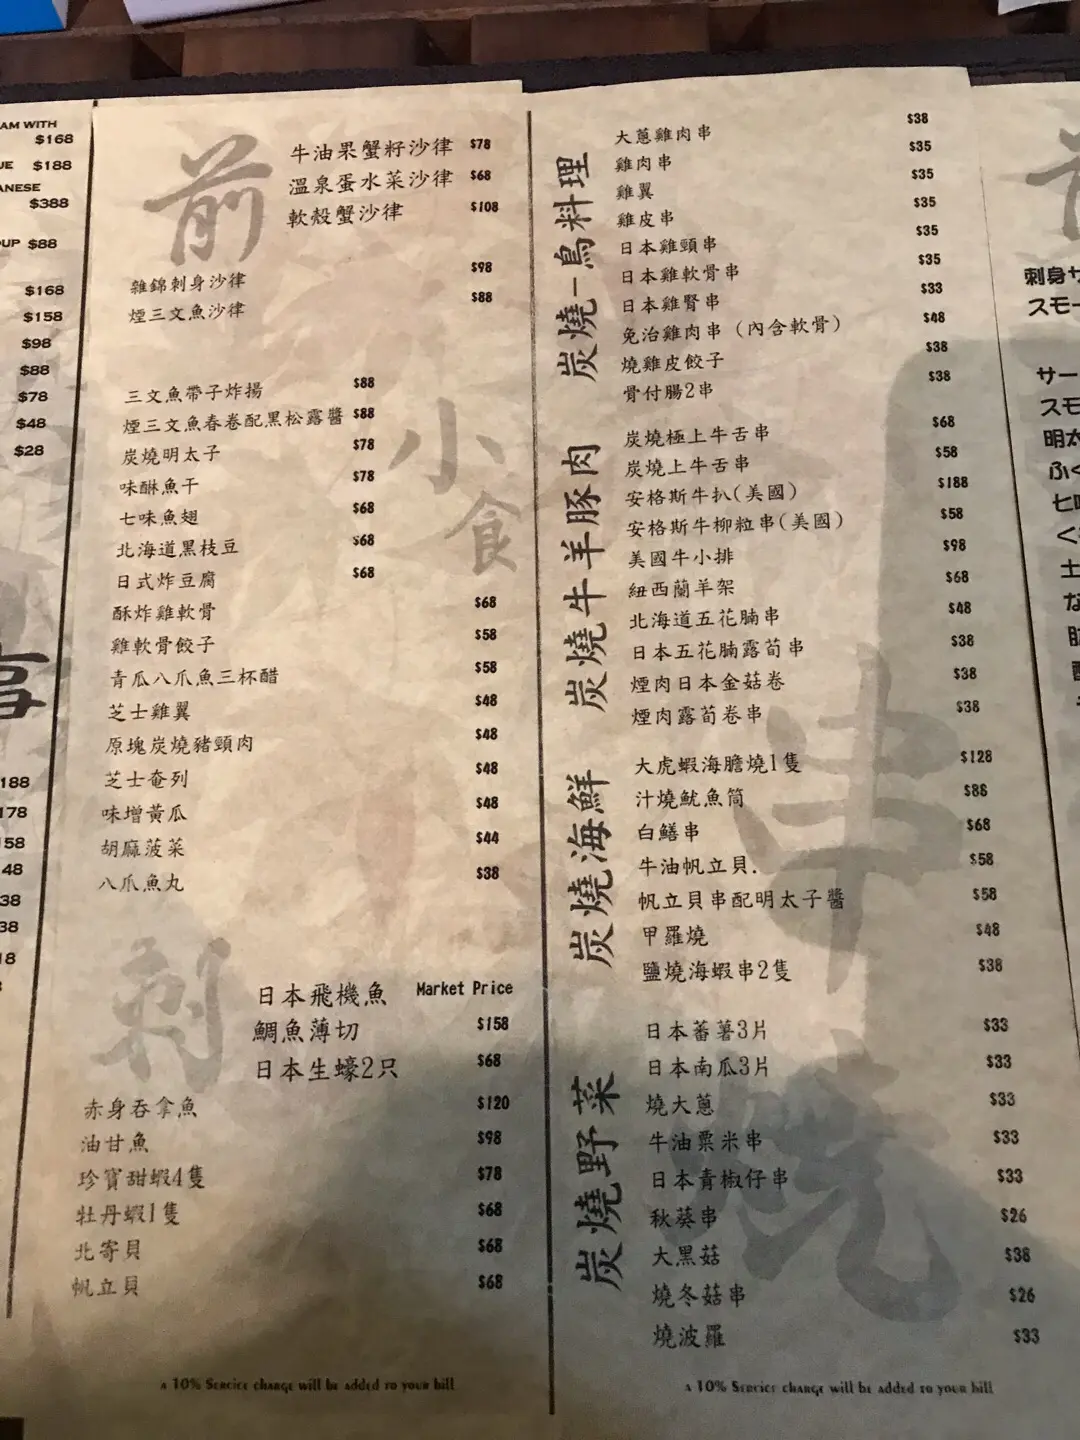 AM WITH
$168
UE $188
ANESE
$388
OUP $88
$168
$158
$98
$88
$78
$48
$28
事
188
178
158
48
38
38
18
前
牛油果蟹籽沙律 $78
溫泉蛋水菜沙律 $68
軟殼蟹沙律 $108
雜錦刺身沙律 $98
煙三文魚沙律 $88
小食
三文魚帶子炸揚 $88
煙三文魚春卷配黑松露醬 $88
炭燒明太子 $78
味醂魚干 $78
七味魚翅 $68
北海道黑枝豆 $68
日式炸豆腐 $68
酥炸雞軟骨 $68
雞軟骨餃子 $58
青瓜八爪魚三杯醋 $58
芝士雞翼 $48
原塊炭燒豬頸肉 $48
芝士奄列 $48
味增黃瓜 $48
胡麻菠菜 $44
八爪魚丸 $38
刺
日本飛機魚 Market Price
鯛魚薄切 $158
日本生蠔2只 $68
赤身吞拿魚 $120
油甘魚 $98
珍寶甜蝦4隻 $78
牡丹蝦1隻 $68
北寄貝 $68
帆立貝 $68
A 10% Service charge will be added to your bill
串燒
炭燒-鳥料理
大蔥雞肉串 $38
雞肉串 $35
雞翼 $35
雞皮串 $35
日本雞頸串 $35
日本雞軟骨串 $35
日本雞腎串 $33
免治雞肉串 (內含軟骨) $48
燒雞皮餃子 $38
骨付腸2串 $38
炭燒牛羊豚肉
炭燒極上牛舌串 $68
炭燒上牛舌串 $58
安格斯牛扒(美國) $188
安格斯牛柳粒串(美國) $58
美國牛小排 $98
紐西蘭羊架 $68
北海道五花腩串 $48
日本五花腩露荀串 $38
煙肉日本金菇卷 $38
煙肉露荀卷串 $38
炭燒海鮮
大虎蝦海膽燒1隻 $128
汁燒魷魚筒 $88
白鱔串 $68
牛油帆立貝. $58
帆立貝串配明太子醬 $58
甲羅燒 $48
鹽燒海蝦串2隻 $38
炭燒野菜
日本蕃薯3片 $33
日本南瓜3片 $33
燒大蔥 $33
牛油粟米串 $33
日本青椒仔串 $33
秋葵串 $26
大黑菇 $38
燒冬菇串 $26
燒波羅 $33
A 10% Service charge will be added to your bill
刺身サ
スモー
サー
スモ
明太
ふく
七味
く
土
な